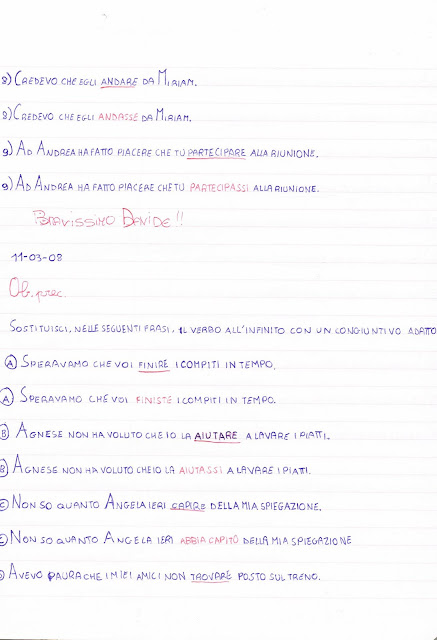 8) CREDEVO CHE EGLI ANDARE DA MIRIAM.
8) CREDEVO CHE EGLI ANDASSE DA MIRIAM.
9) AD ANDREA HA FATTO PIACERE CHE TU PARTECIPARE ALLA RIUNIONE.
9) AD ANDREA HA FATTO PIACERE CHE TU PARTECIPASSI ALLA RIUNIONE.
BRAVISSIMO DAVIDE!!
11-03-08
Ob. prec.
SOSTITUISCI, NELLE SEGUENTI FRASI, IL VERBO ALL'INFINITO CON UN CONGIUNTIVO ADATTO
A SPERAVAMO CHE VOI FINIRE I COMPITI IN TEMPO.
A SPERAVAMO CHE VOI FINISTE I COMPITI IN TEMPO.
B AGNESE NON HA VOLUTO CHE IO LA AIUTARE A LAVARE I PIATTI.
B AGNESE NON HA VOLUTO CHE IO LA AIUTASSI A LAVARE I PIATI.
C NON SO QUANTO ANGELA IERI CAPIRE DELLA MIA SPIEGAZIONE.
C NON SO QUANTO ANGELA IERI ABBIA CAPITO DELLA MIA SPIEGAZIONE
D AVEVO PAURA CHE I MIEI AMICI NON TROVARE POSTO SUL TRENO.